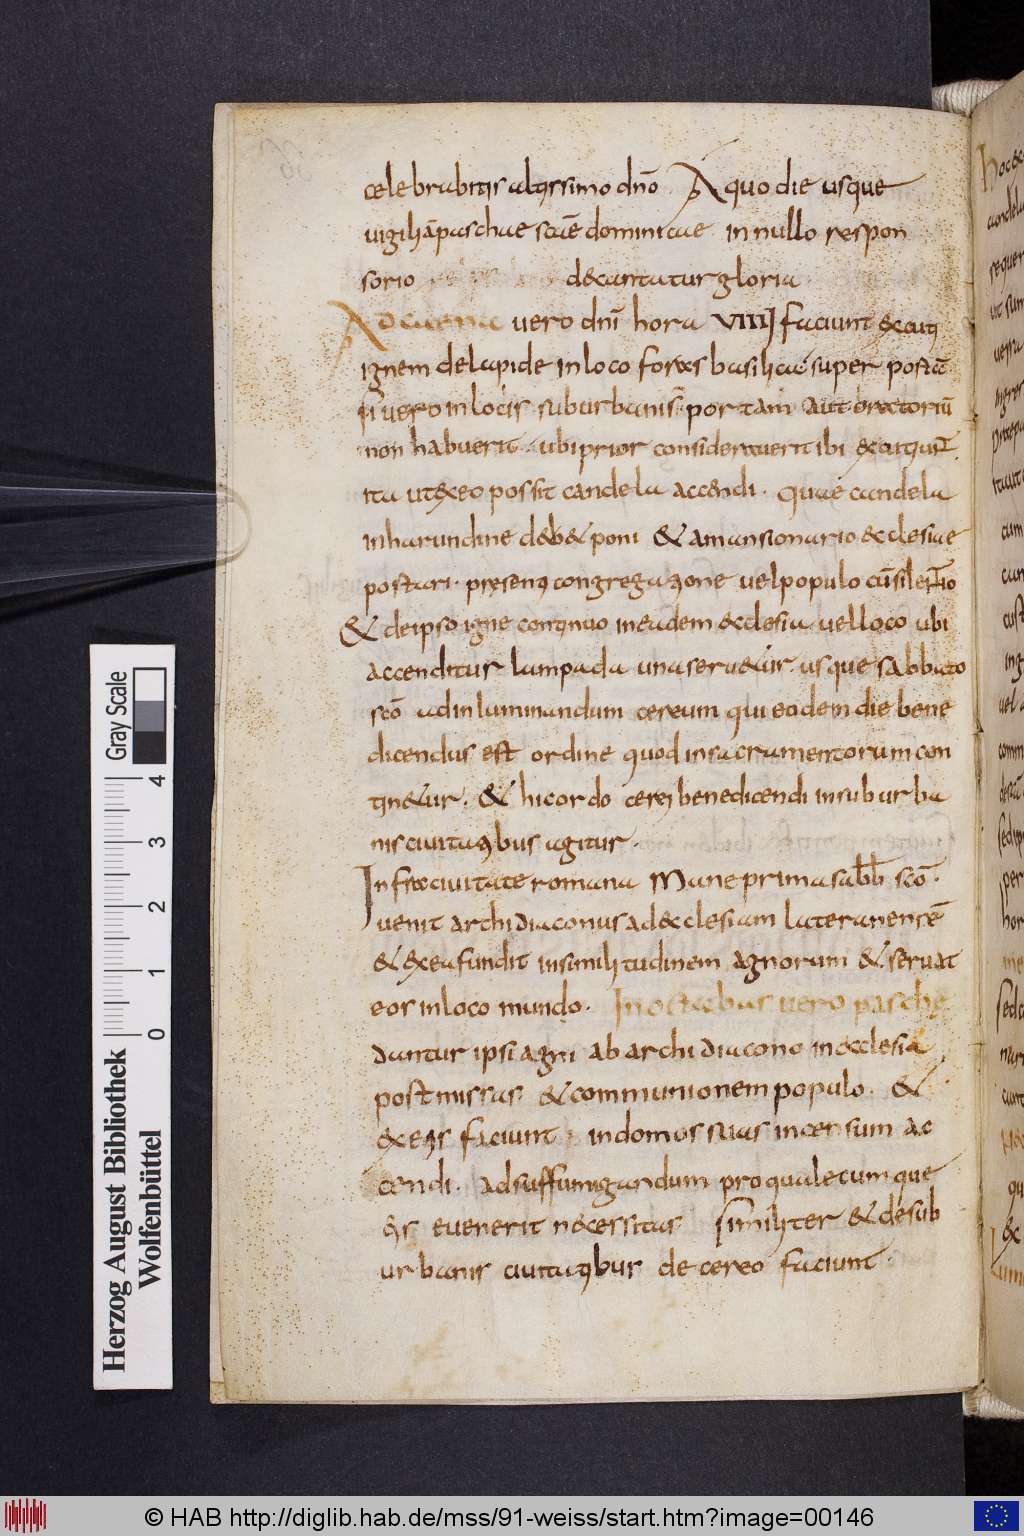 celebrabitis altissimo dnō. A quo die usque
uigiliā paschae scāe dominicae in nullo respon
sorio decantatur gloria.
Ad caena uero dnī hora VIIII faciunt excuti
ignem de lapide in loco foras basilicae super postā
si uero in locis suburbanis portam aut oratoriū
non habuerit ubi prior considerauerit ibi excutiunt.
ita ut ex eo possit candela accendi. quae candela
in harundine debet poni & a mansionario ecclesiae
portari. presenti congregatione uel populo cū silentio
& de ipso igne continuo in eadem ecclesia uel loco ubi
accenditur lampada una seruetur usque sabbato
scō ad inluminandum cereum qui eodem die bene
dicendus est ordine quod in sacramentorum con
tinetur. & hic ordo cerei benedicendi in suburba
nis ciuitatibus agitur.
Infra ciuitate romana Mane prima sabb scō.
uenit archidiaconus ad ecclesiam lateranensē
& ex ea fundit in similitudinem agnorum & seruat
eos in loco mundo. In octabas uero paschę
dantur ipsi agni ab archidiacono in ecclesia
post missas & communionem populo. &
ex eis faciunt in domos suas incensum ac
cendi. ad suffumigandum pro qualecumque
eis euenerit necessitas similiter & de sub
urbanis ciuitatibus de cereo faciunt.
Herzog August Bibliothek
Wolfenbüttel
0 1 2 3 4
Gray Scale
© HAB http://diglib.hab.de/mss/91-weiss/start.htm?image=00146